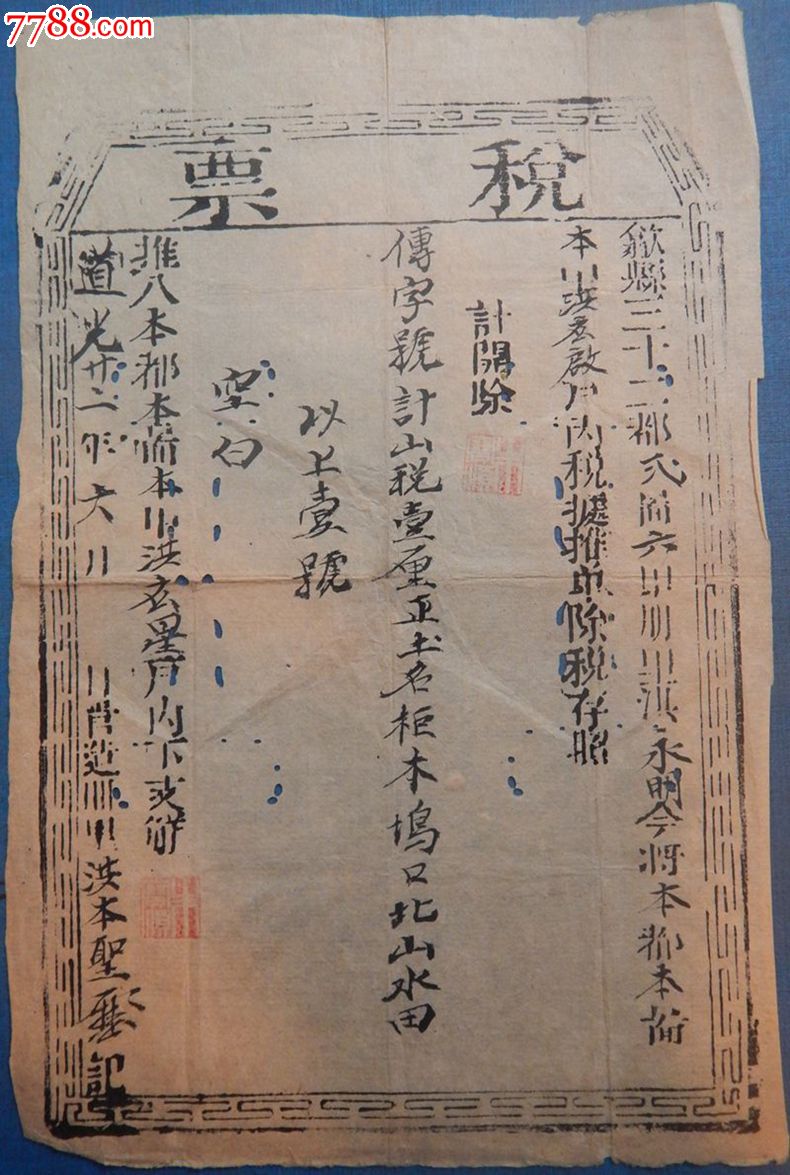 7788.com
稅票
歙縣三十二都弍啚六甲冊甲洪永明今將本都本啚
本甲洪玄啟戶內稅據推中除稅存照
計開除
傳字號計山稅壹厘正土名柜木塢口北山水田
以上壹號
空白
推入本都本啚本甲洪玄星戶內下支解
道光廿二年六月 日 造冊 洪本聖 記